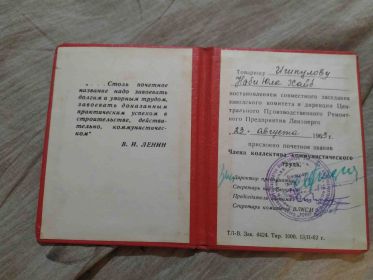 „. . . Столь почетное
название надо завоевать
долгим и упорным трудом,
завоевать доказанным
практическим успехом в
строительстве, действи-
тельно, коммунистичес-
ком“
В. И. ЛЕНИН
Товарищу
постановлением совместного заседания
заводского комитета и дирекции Цен-
трального Производственного Ремонт-
ного Предприятия Ленэнерго
23 августа 1963 г.
присвоено почетное звание
Члена коллектива коммунистического
труда.
Директор предприятия
Секретарь
Председатель
Секретарь комитета ВЛКСМ
ТЛ-В. Зак. 4424. Тир. 1000. 13/II-62 г.